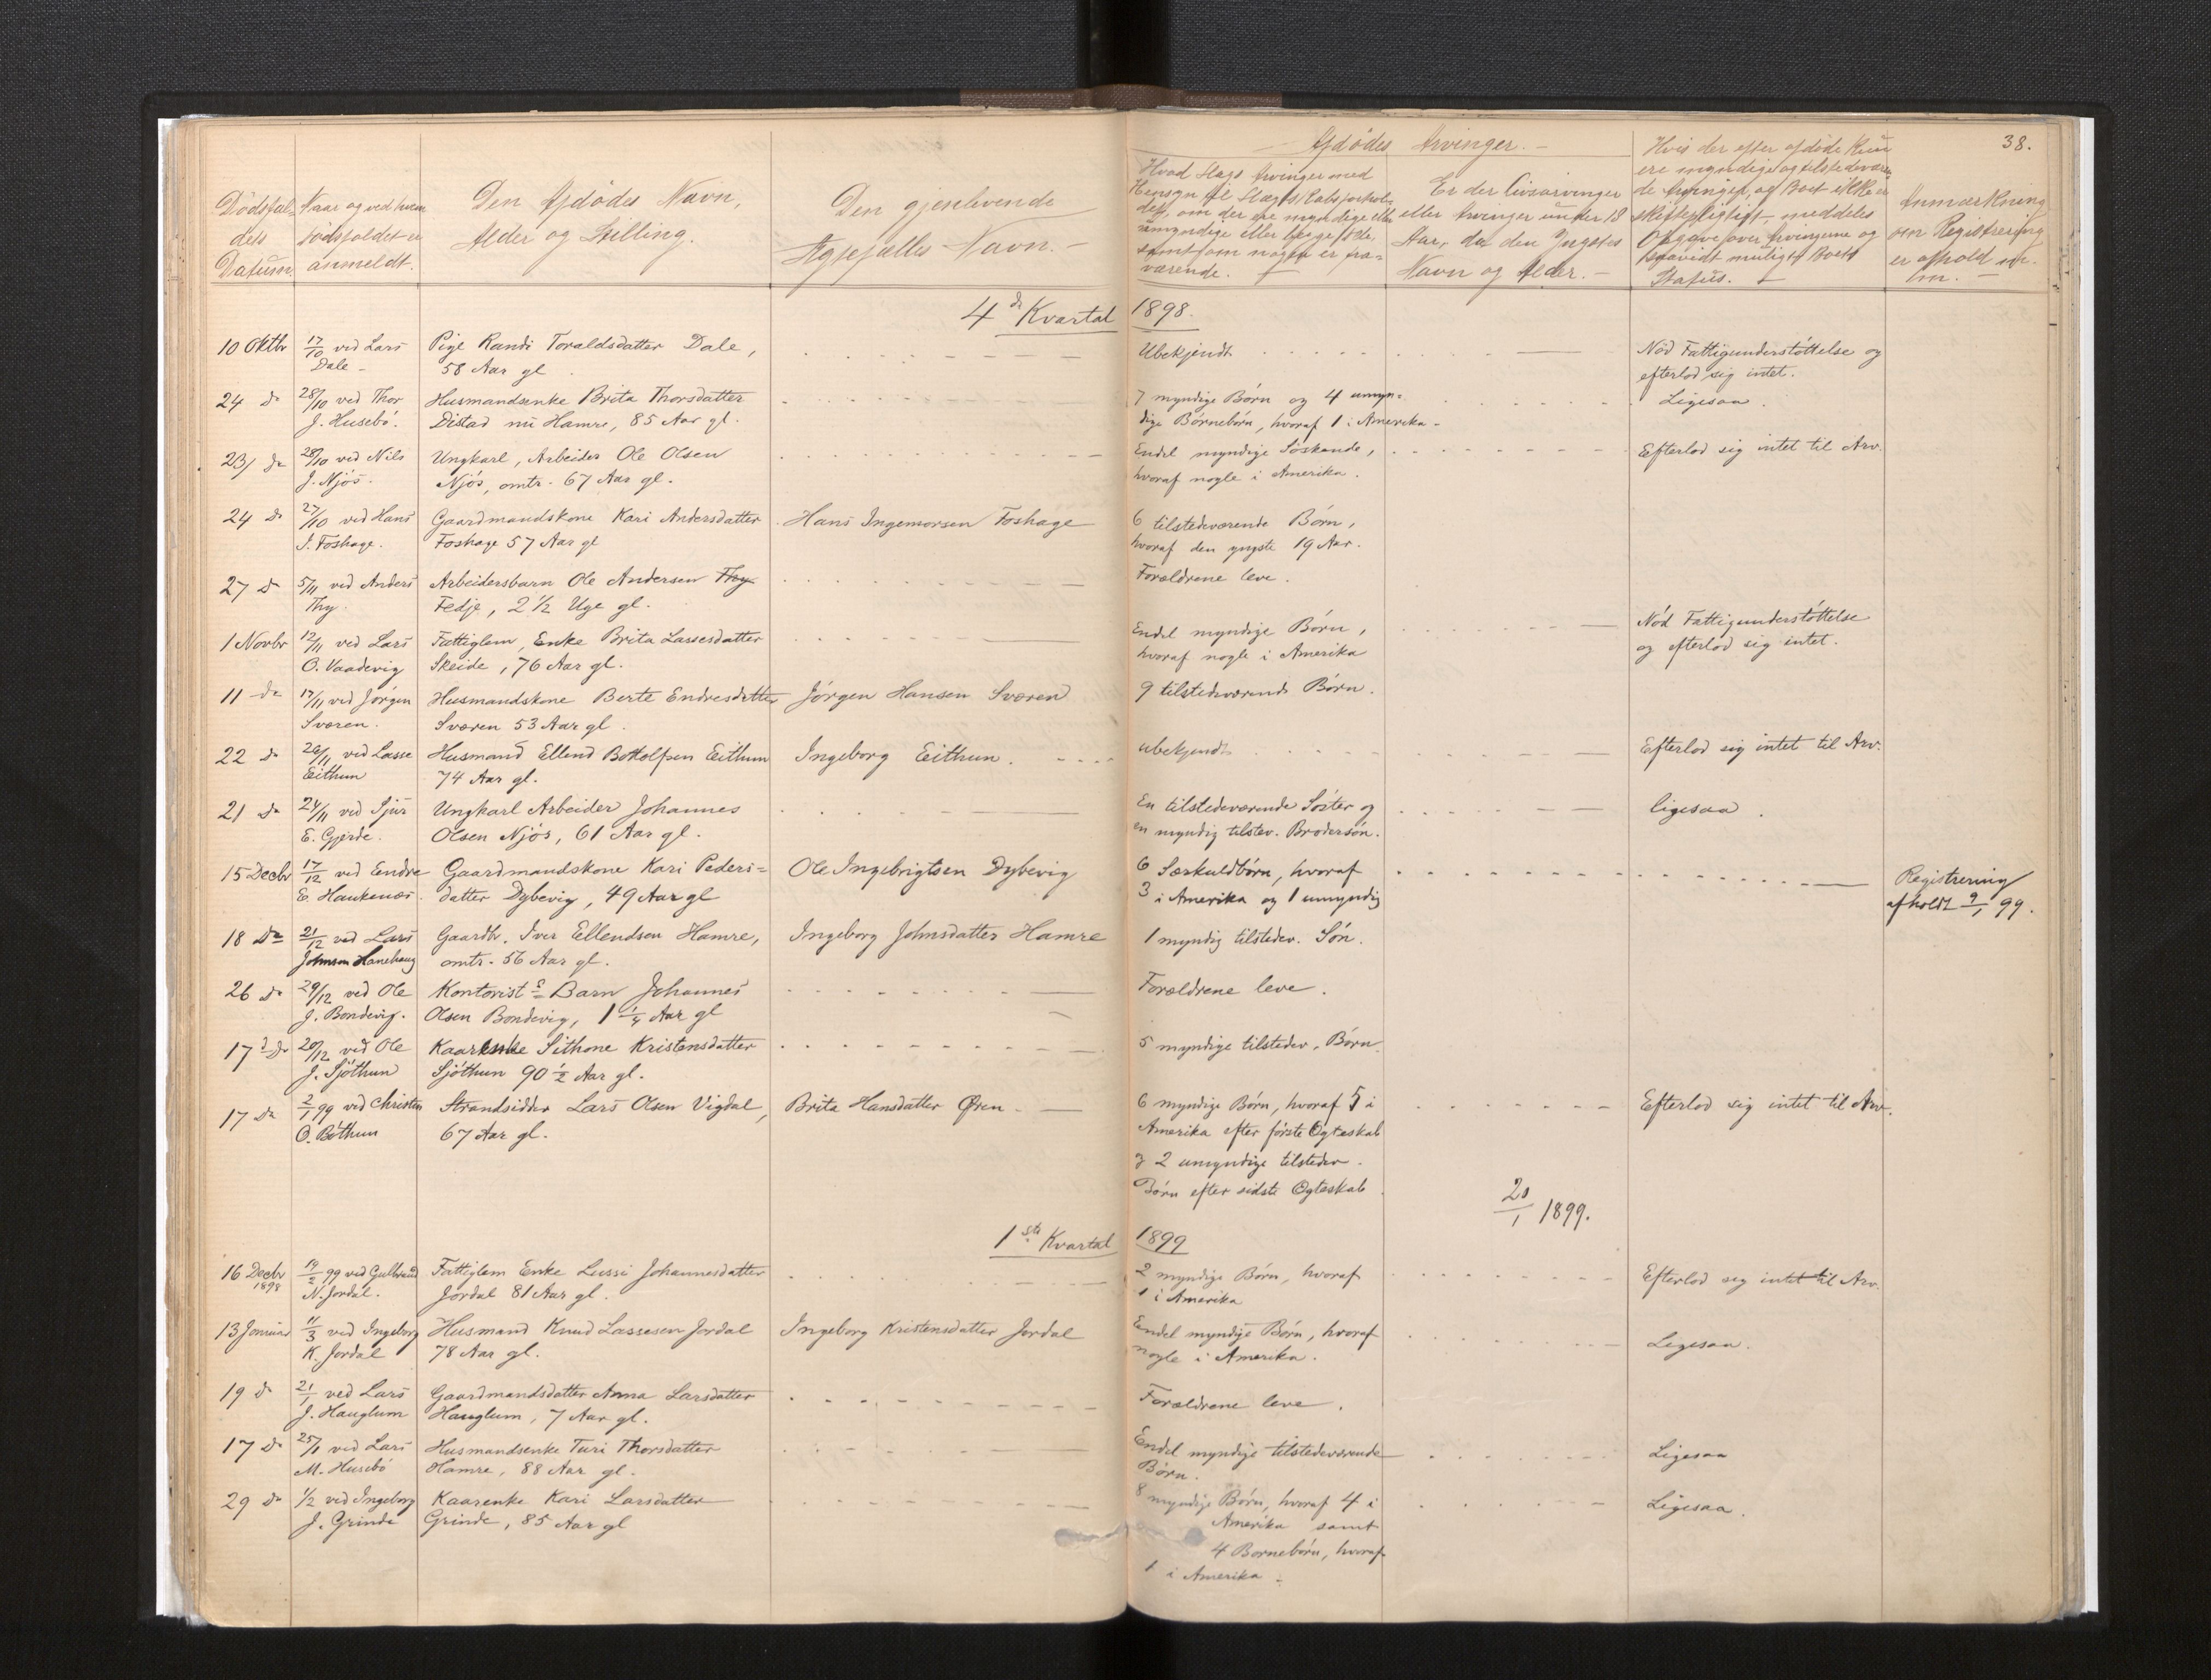 38.
Dödsfal-
dets
Datum.
Naar og ved hvem
dödsfaldet er
anmeldt.
Den Afdödes Navn,
Alder og Stilling.
Den gjenlevende
Ægtefælles Navn. -
Afdödes Arvinger. -
Hvad Slags Arvinger med
Hensyn til Slægtskabsforhol-
det, om der ere myndige eller
umyndige eller begge Dele,
samt om nogen er fra-
værende. -
Er der Livsarvinger
eller Arvinger under 18
Aar, da den Yngstes
Navn og Alder. -
Hvis der efter afdöde kun
ere myndige og tilstedeværen
de Arvinger, og Boet ikke er
skiftepligtigt, meddeles
Opgave over Arvingerne og
saavidt muligt Boets
Status. -
Anmærkning
om Registrering
er afhold
4de Kvartal 1898.
10 Oktbr 17/10 ved Lars Pige Randi Toraldsdatter Dale, Ubekjendt Nöd Fattigunderstöttelse og
Dale - 58 Aar gl. efterlod sig intet.
24 do 28/10 ved Thor Husmandsenke Brita Thorsdatter 7 myndige Börn og 4 umyn- Ligesaa.
J. Husebö. Distad nu Hamre, 85 Aar gl. dige Börnebörn, hvoraf 1 i Amerika -
23/ do 28/10 ved Nils Ungkarl, Arbeider Ole Olsen Endel myndige Söskende, Efterlod sig intet til Arv.
J. Njös. Njös, omtr. 67 Aar gl. hvoraf nogle i Amerika.
24 do 27/10 ved Hans Gaardmandskone Kari Andersdatter Hans Ingemorsen Foshage 6 tilstedeværende Börn,
I. Foshage. Foshage 57 Aar gl hvoraf den yngste 19 Aar.
27 do 5/11 ved Anders Arbeidersbarn Ole Andersen Thy Forældrene leve.
Thy. Fedje, 2 1/2 Uge gl.
1 Novbr 12/11 ved Lars Fattiglem, Enke Brita Lassesdatter Endel myndige Börn, Nöd Fattigunderstöttelse
O. Vaadevig Skeide, 76 Aar gl. hvoraf nogle i Amerika og efterlod sig intet.
11 do 17/11 ved Jörgen Husmandskone Berte Endresdatter Jörgen Hansen Sværen 9 tilstedeværende Börn.
Sværen. Sværen 53 Aar gl.
22 do 26/11 ved Lasse Husmand Ellend Bottolfsen Eithum Ingeborg Eithun. ubekjendt Efterlod sig intet til Arv.
Eithum 74 Aar gl.
21 do 24/11 ved Sjur Ungkarl Arbeider Johannes En tilstedeværende Söster og ligesaa.
E. Gjerde. Olsen Njös, 61 Aar gl. en myndig tilstev. Brodersön.
15 Decbr 17/12 ved Endre Gaardmandskone Kari Peders= Ole Ingebrigtsen Dybevig 6 Særkuldbörn, hvoraf Registrering
E. Haukenæs. datter Dybevig, 49 Aar gl 3 i Amerika og 1 umyndig afholdt 9/1 99.
18 Do 21/12 ved Lars Gaardbr. Iver Ellendsen Hamre, Ingeborg Johnsdatter Hamre 1 myndig tilstedev. Sön.
Johnson Hanehaug omtr. 56 Aar gl.
26 do 29/12 ved Ole Kontorists Barn Johannes Forældrene leve.
J. Bondevig. Olsen Bondevig, 1 1/4 Aar gl
17 do 20/12 ved Ole Kaarenke Sithone Kristensdatter 5 myndige tilstedev. Börn.
J. Sjöthun Sjöthun 90 1/2 Aar gl.
17 Do 2/1 99 ved Christen Strandsidder Lars Olsen Vigdal, Brita Hansdatter Øren - 6 myndige Börn, hvoraf 5 i Efterlod sig intet til Arv.
O. Böthun 67 Aar gl. Amerika efter förste Ægteskab
og 2 umyndige tilstedev.
Börn efter sidste Ægteskab
20/1 1899.
1ste Kvartal 1899
16 Decbr 1898 19/2 99 ved Gulbrand Fattiglem Enke Lussi Johannesdatter 2 myndige Börn, hvoraf Efterlod sig intet til Arv.
N. Jordal. Jordal 81 Aar gl. 1 i Amerika
13 Januar 11/3 ved Ingeborg Husmand Knud Lassesen Jordal Ingeborg Kristensdatter Jordal Endel myndige Börn, hvoraf Ligesaa.
K. Jordal 78 Aar gl. nogle i Amerika.
19 do 21/1 ved Lars Gaardmandsdatter Anna Larsdatter Forældrene leve.
J. Hauglum Hauglum, 7 Aar gl.
17 Do 25/1 ved Lars Husmandsenke Turi Thorsdatter Endel myndige tilstedeværende Ligesaa
M. Husebö Hamre, 88 Aar gl. Börn.
29 Do 1/2 ved Ingeborg Kaarenke Kari Larsdatter 8 myndige Börn, hvoraf 4 i Ligesaa.
J. Grinde Grinde, 85 Aar gl Amerika samt
4 Börnebörn, hvoraf
1 i Amerika -